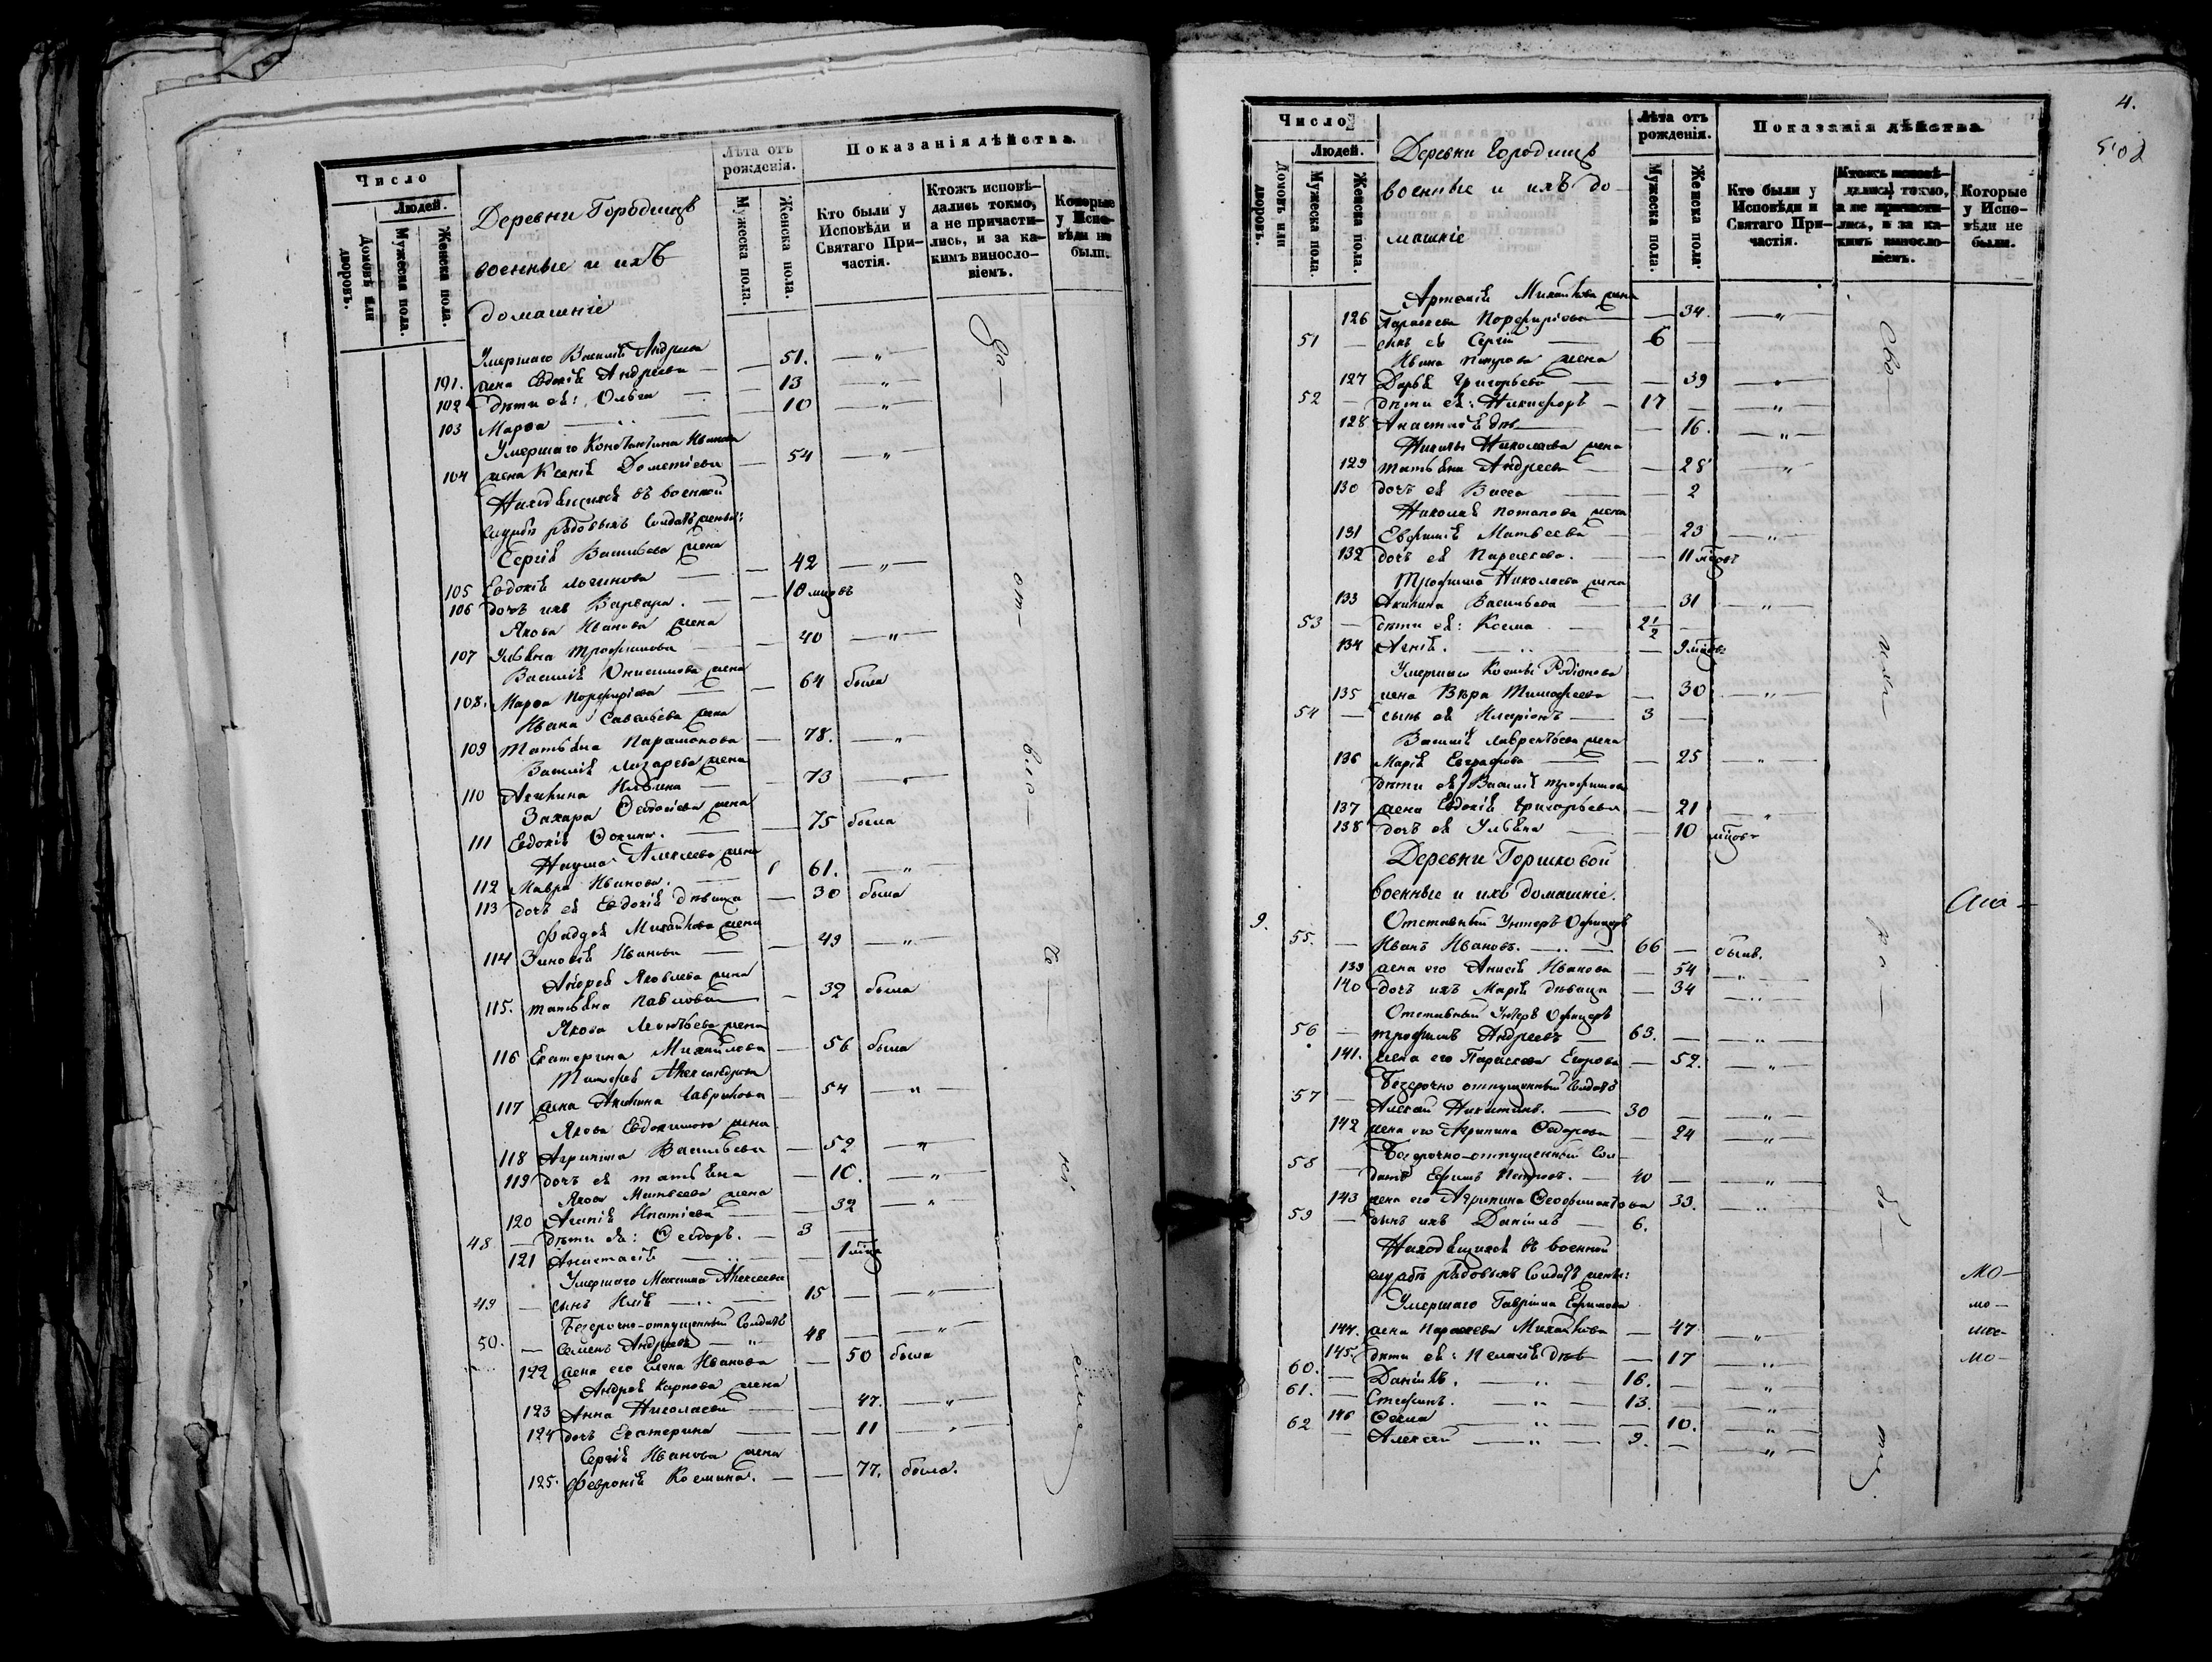 Число
Людей.
Домовъ или дворовъ.
Мужеска пола.
Женска пола.
Деревни Городищъ
военные и ихъ
домашніе
Лѣта отъ рожденія.
Мужеска пола.
Женска пола.
Показанія дѣйства.
Кто были у Исповѣди и Святаго Причастія.
Ктожъ исповѣдались токмо, а не причастились, и за какимъ винословіемъ.
Которые у Исповѣди не были.
Умершаго Василія Андреева
101. жена Евдокія Андреева — 51. — „ —
102 дѣти ея: Ольга — 13 — „ —
103 Марѳа — 10 — „ —
Умершаго Константина Иванова
104 жена Ксенія Дометіева — 54 — „ —
Находящихся въ военной
службѣ рядовыхъ солдатъ жены:
Сергія Васильева жена
105 Евдокія Логинова — 42 — „ —
106 дочь ихъ Варвара. — 10 мцовъ
Якова Иванова жена
107 Ульяна Трофимова — 40 — „ —
Василія Онисимова жена
108. Марѳа Порфирьева — 64 была
Ивана Савельева жена
109 Татьяна Парамонова — 78. — „
Василія Лазарева жена
110 Акилина Ильина — 73 — „ —
Захара Ѳедосіева жена
111 Евдокія Ѳокина. — 75 была
Наума Алексеева жена
112 Мавра Иванова. — 61. — „
113 дочь ея Евдокія дѣвица — 30 была
Фаддея Михайлова жена
114 Зиновія Иванова — 49 — „ —
Андрея Яковлева жена
115. Татьяна Павлова — 32 была
Якова Леонтьева жена
116 Екатерина Михайлова — 56 была
Тимофея Александрова
117 жена Акилина Гаврилова — 54 — „ —
Якова Евдокимова жена
118 Агрипина Васильева — 52 — „ —
119 дочь ея Татьяна — 10. — „ —
Якова Матвеева жена
120 Агапія Игнатіева — 32 — „
48 — дѣти ея: Ѳеодоръ. — 3 —
121 Анастасія — 1 мца
Умершаго Максима Алексеева
49 — сынъ Илія — 15 — „ —
Безсрочно-отпущенный солдатъ
50. — Семенъ Андреевъ — 48 — „
122 жена его Елена Иванова — 50 была
Андрея Карпова жена
123 Анна Николаева — 47. — „
124 дочь Екатерина — 11 — „
Сергія Иванова жена
125. Февронія Косьмина. — 77. была.
4.
502
Число
Людей.
Домовъ или дворовъ.
Мужеска пола.
Женска пола.
Деревни Городищъ
военные и ихъ до-
машніе
Лѣта отъ рожденія.
Мужеска пола.
Женска пола.
Показанія дѣйства.
Кто были у Исповѣди и Святаго Причастія.
Ктожъ исповѣдались токмо, а не причастились, и за какимъ винословіемъ.
Которые у Исповѣди не были.
Михайлова жена
126 Параскева Порфирьева — 34. — „ —
51 — сынъ ея Сергій — 6 —
Ивана жена
127 Дарья Григорьева — 39 — „ —
52 — дѣти ея: Никифоръ — 17 — „ —
128 Анастасія дѣв — 16. — „ —
Никиты Николаева жена
129 Татьяна Андреева — 28 — „
130 дочь ея Васса — 2
Николая Потапова жена
131 Евфимія Матвеева — 23 — „ —
132 дочь ея Параскева. — 11 мцовъ
Трофима Николаева жена
133 Акилина Васильева — 31 — „ —
53 — дѣти ея: Косма — 2 1/2 —
134 Агнія. — 9 мцовъ
Умершаго Космы Родіонова
135 жена Вѣра Тимофеева — 30 — „ —
54 — сынъ ея Иларіонъ — 3 —
Василія Лаврентьева жена
136 Марія Евграфова — 25 — „ —
Василія Трофимова
137 жена Евдокія Григорьева — 21 — „
138 дочь ея Ульяна — 10 мцовъ
Деревни Горшковой
военные и ихъ домашніе.
9. Отставный Унтеръ Офицеръ
55. — Иванъ Ивановъ. — 66 — былъ.
139 жена его Анисія Иванова — 54 — „
140 дочь ихъ Марія дѣвица — 34 — „ —
Отставный Унтеръ Офицеръ
56 — Трофимъ Андреевъ — 63. — „ —
141. жена его Параскева Егорова — 52. — „ —
Безсрочно отпущенный солдатъ
57 — Алексѣй Никитинъ. — 30 — „ —
142 жена его Агрипина Ѳедорова — 24 — „ —
Безсрочно-отпущенный сол-
58 — датъ Ефимъ Петровъ. — 40 — „ —
143 жена его Агрипина Ѳеофилактова 33. — „ —
59 — сынъ ихъ Даніилъ — 6.
Находящихся въ военной
службѣ рядовыхъ солдатъ жены:
Умершаго Гавріила Ефимова
144. жена Параскева Михайлова — 47 — „ —
145. дѣти ея: Пелагія дѣв — 17 — „ —
60. — Даніилъ. — 16. — „ —
61. — Стефанъ. — 13. — „ —
146 Ѳекла — 10. — „ —
62 — Алексѣй — 9. — „ —